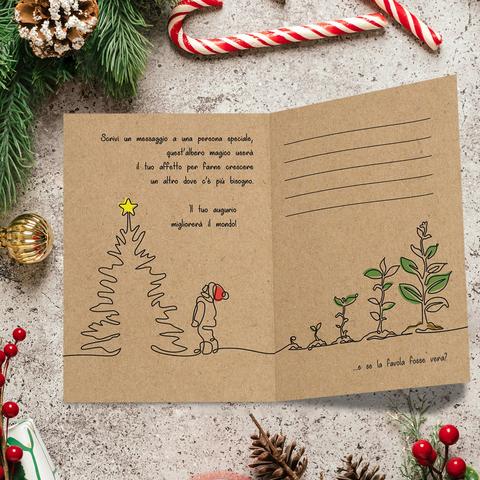 Scrivi un messaggio a una persona speciale,
quest'albero magico userà
il tuo affetto per farne crescere
un altro dove c'è più bisogno.
Il tuo augurio
migliorerà il mondo!
...e se la favola fosse vera?